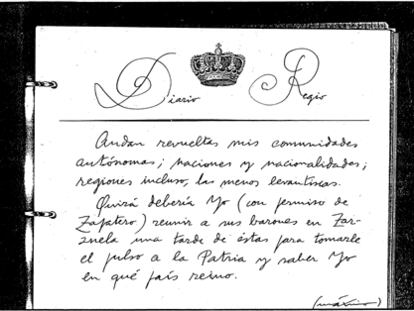 Diario Regio
Andan revueltas mis comunidades
autónomas; naciones y nacionalidades;
regiones incluso, las menos levantiscas.
Quizá debería Yo (con permiso de
Zapatero) reunir a sus barones en Zar-
zuela una tarde de éstas para tomarle
el pulso a la Patria y saber Yo
en qué país reino.
(máximo)